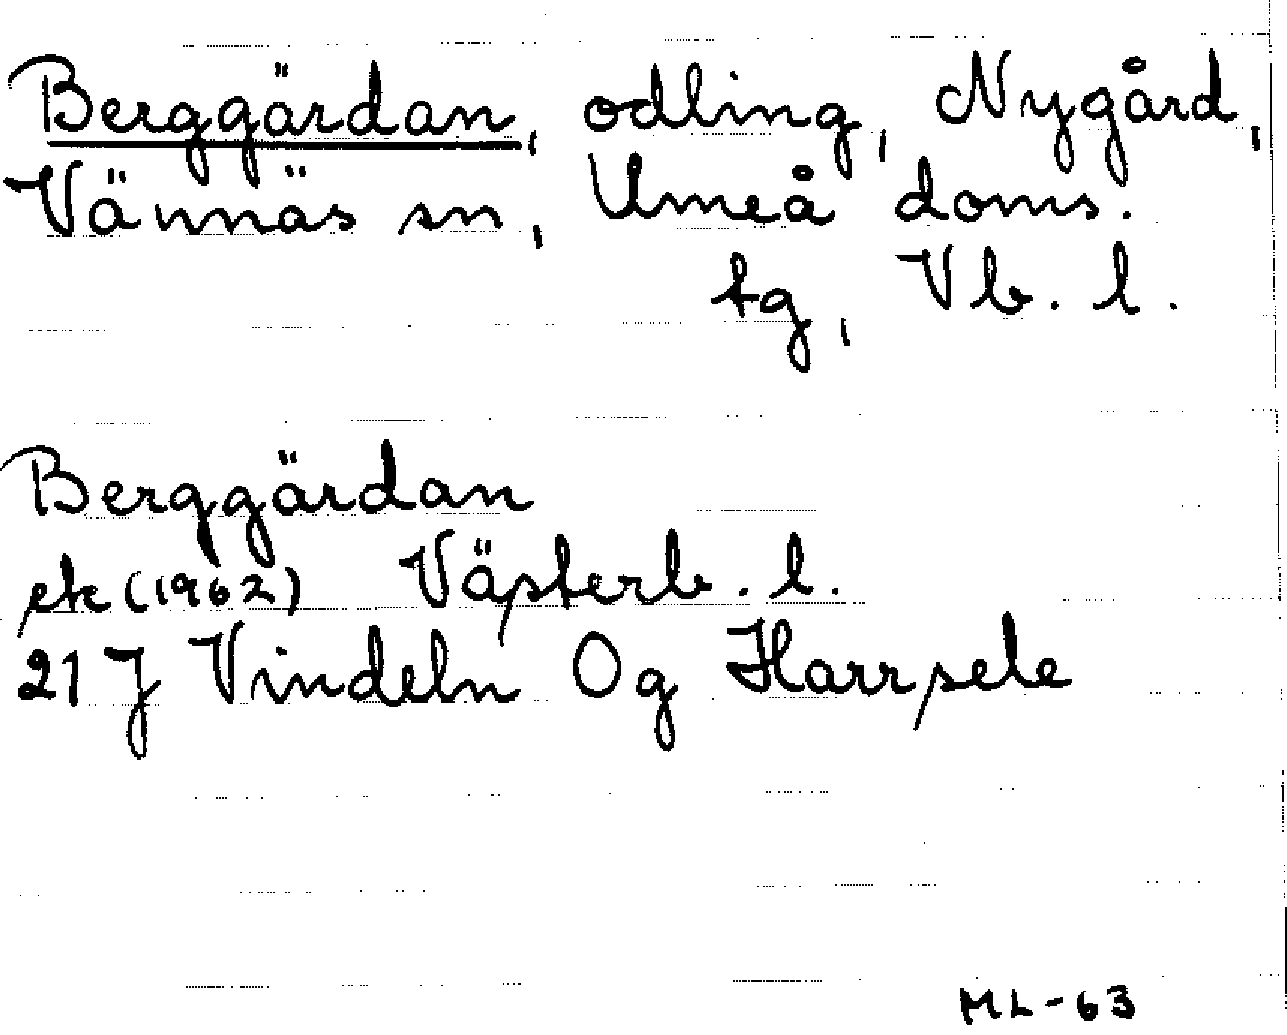 Berggärdan, odling, Nygård,
Vännäs sn, Umeå doms.
tg, Vb. l.
Berggärdan
ek (1962) Västerb. l.
21 J Vindeln Og Harrsele
ML-63